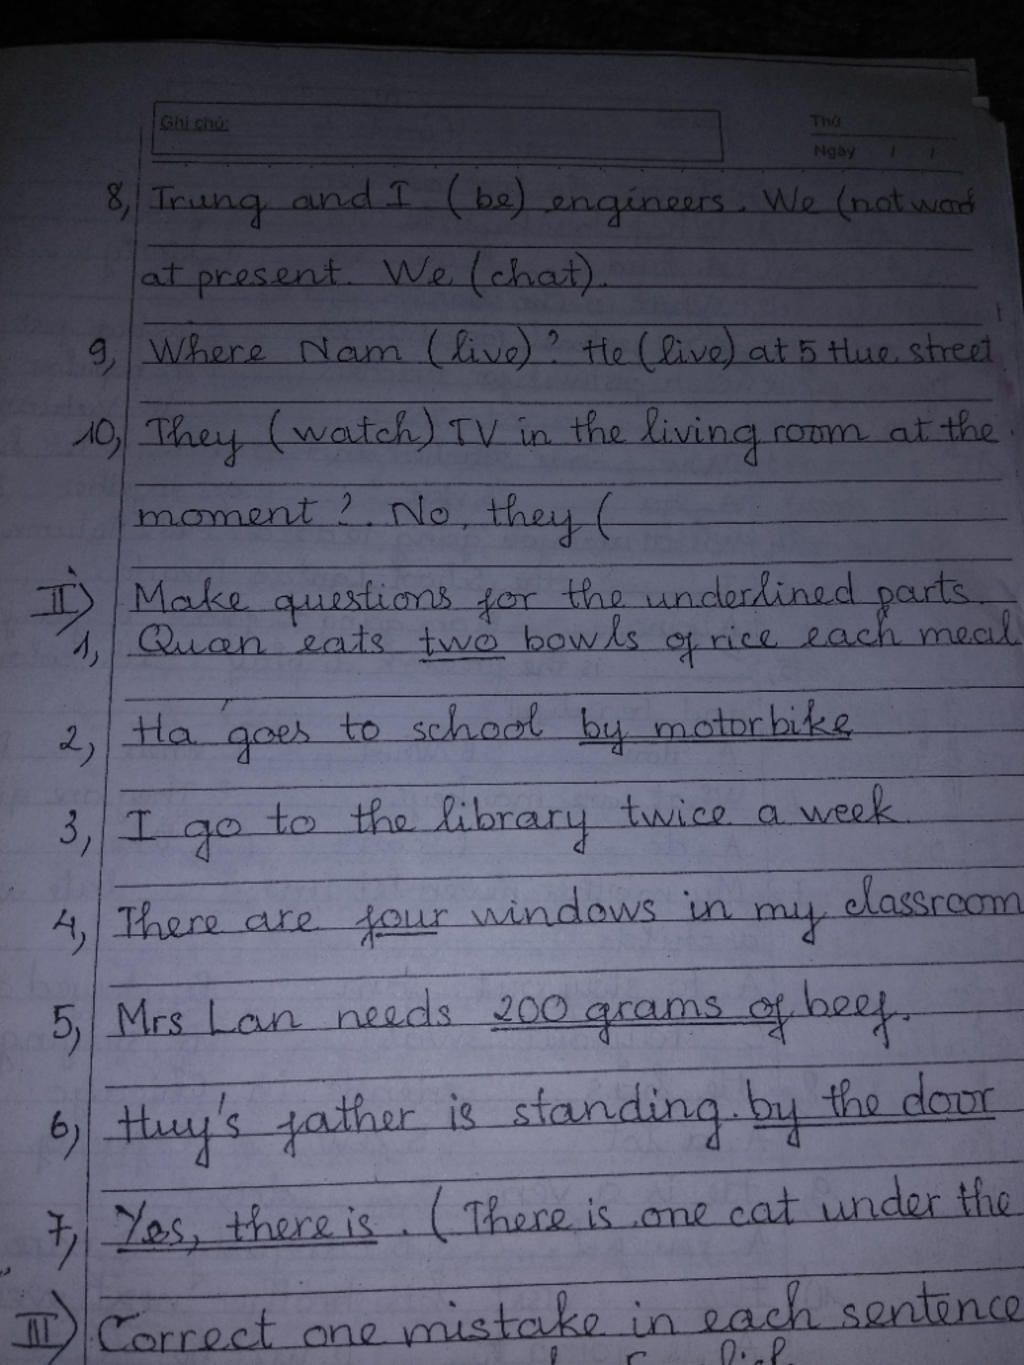 Ghi chú:
Thứ
Ngày / /
8, Trung and I (be) engineers. We (not
at present. We (chat).
9, Where Nam (live)? He (live) at 5 Hue street
10, They (watch) TV in the living room at the
moment?. No, they (
II) Make questions for the underlined parts.
1, Quan eats two bowls of rice each meal
2, Ha goes to school by motorbike
3, I go to the library twice a week.
4, There are four windows in my classroom
5, Mrs Lan needs 200 grams of beef.
6, Huy's father is standing by the door
7, Yes, there is. (There is one cat under the
III) Correct one mistake in each sentence